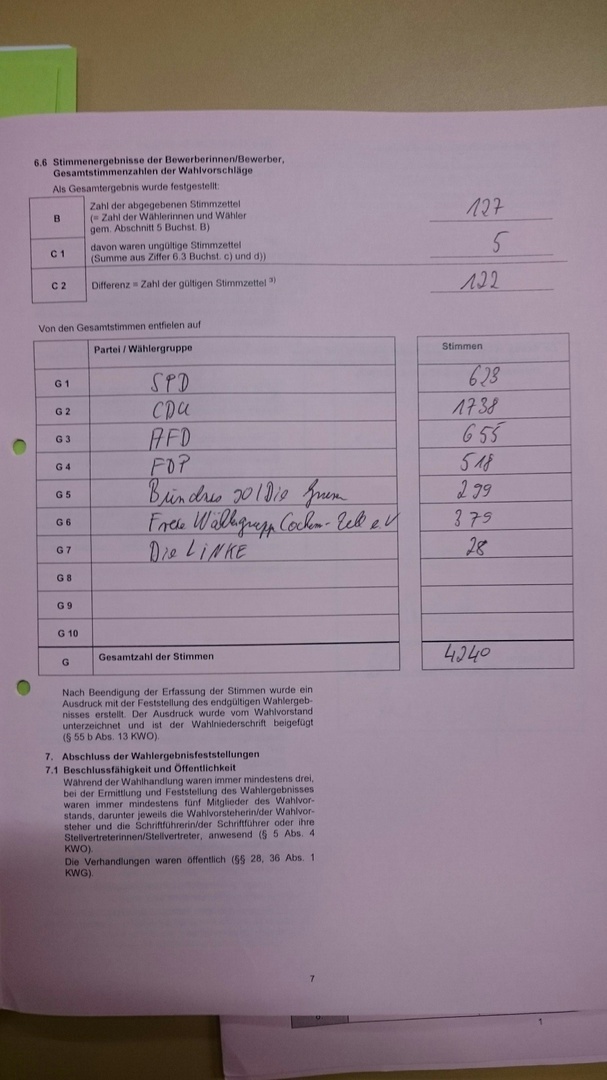 6.6 Stimmenergebnisse der Bewerberinnen/Bewerber,
Gesamtstimmenzahlen der Wahlvorschläge
Als Gesamtergebnis wurde festgestellt:
B Zahl der abgegebenen Stimmzettel
(= Zahl der Wählerinnen und Wähler
gem. Abschnitt 5 Buchst. B) 127
C 1 davon waren ungültige Stimmzettel
(Summe aus Ziffer 6.3 Buchst. c) und d)) 5
C 2 Differenz = Zahl der gültigen Stimmzettel 3) 122
Von den Gesamtstimmen entfielen auf
Partei / Wählergruppe Stimmen
G 1 SPD 623
G 2 CDU 1738
G 3 AFD 655
G 4 FDP 518
G 5 Bündnis 90/Die Grünen 299
G 6 Freie Wählergruppe Cochem-Zell e.V 379
G 7 Die LiNKE 28
G 8
G 9
G 10
G Gesamtzahl der Stimmen 4240
Nach Beendigung der Erfassung der Stimmen wurde ein
Ausdruck mit der Feststellung des endgültigen Wahlergeb-
nisses erstellt. Der Ausdruck wurde vom Wahlvorstand
unterzeichnet und ist der Wahlniederschrift beigefügt
(§ 55 b Abs. 13 KWO).
7. Abschluss der Wahlergebnisfeststellungen
7.1 Beschlussfähigkeit und Öffentlichkeit
Während der Wahlhandlung waren immer mindestens drei,
bei der Ermittlung und Feststellung des Wahlergebnisses
waren immer mindestens fünf Mitglieder des Wahlvor-
stands, darunter jeweils die Wahlvorsteherin/der Wahlvor-
steher und die Schriftführerin/der Schriftführer oder ihre
Stellvertreterinnen/Stellvertreter, anwesend (§ 5 Abs. 4
KWO).
Die Verhandlungen waren öffentlich (§§ 28, 36 Abs. 1
KWG).
7
1